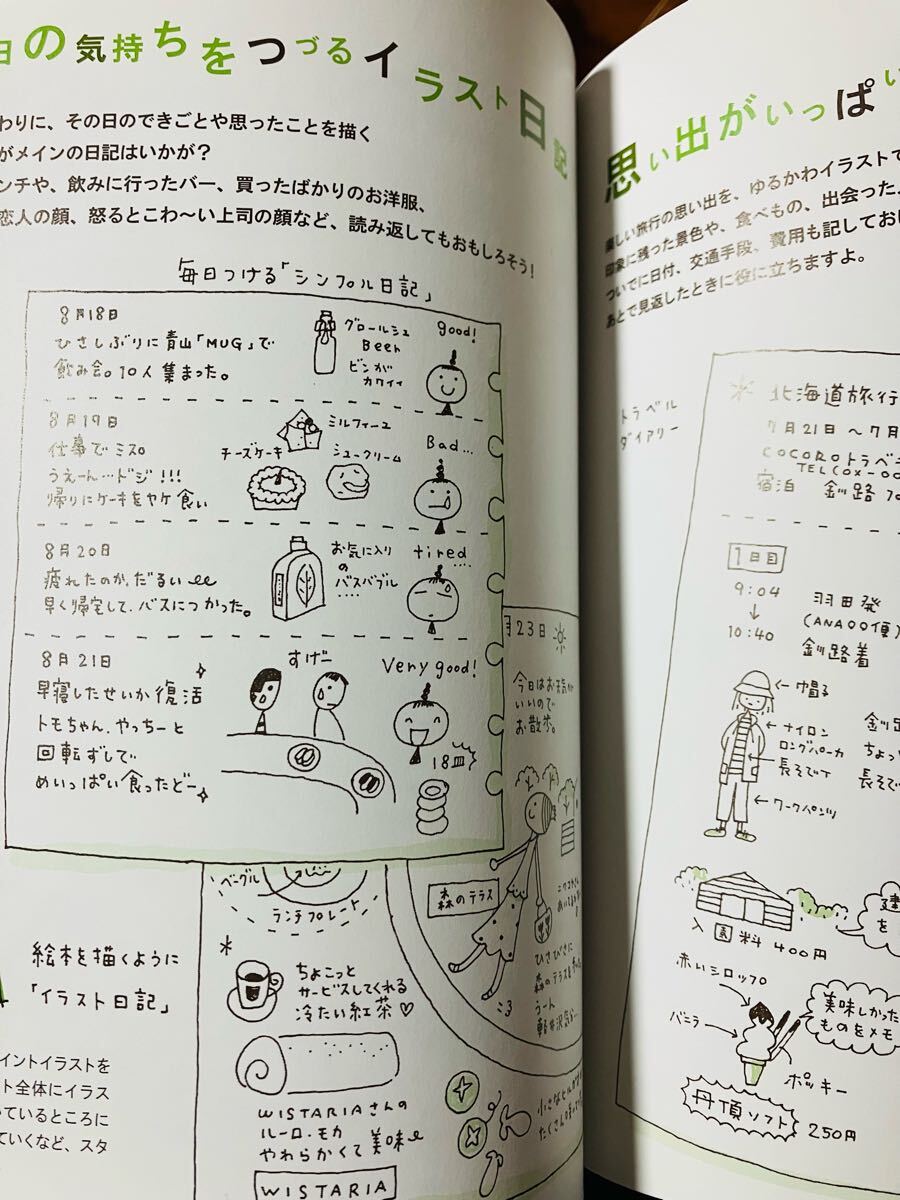 日の気持ちをつづるイラスト日記
わりに、その日のできごとや思ったことを描く
がメインの日記はいかが?
ンチや、飲みに行ったバー、買ったばかりのお洋服、
恋人の顔、怒るとこわ〜い上司の顔など、読み返してもおもしろそう!
毎日つける「シンプル日記」
8月18日
ひさしぶりに青山「MUG」で
飲み会。10人集まった。
グロールシュ
Beer
ビンが
カワイイ
good!
8月19日
仕事でミス。
うえーん…ドジ!!!
帰りにケーキをヤケ食い
ミルフィーユ
チーズケーキ
シュークリーム
Bad...
8月20日
疲れたのか、だるい
早く帰宅して、バスにつかった。
お気に入り
の
バスバブル
tired
....
8月21日
早寝したせいか復活
トモちゃん、やっちーと
回転ずしで
めいっぱい食ったどー
すげー
Very good!
18皿
月23日
今日はお天気が
いいので
お散歩。
森のテラス
ひさびさに
森のテラス
ベーグル
ランチプレート
ちょこっと
サービスしてくれる
冷たい紅茶♡
WISTARIAさんの
ルーロ.モカ
やわらかくて美味
WISTARIA
絵本を描くように
「イラスト日記」
イントイラストを
ト全体にイラス
ているところに
ていくなど、スタ
思い出がいっぱい
楽しい旅行の思い出を、ゆるかわイラストで
印象に残った景色や、食べもの、出会った人
ついでに日付、交通手段、費用も記してお
あとで見返したときに役に立ちますよ。
トラベル
ダイアリー
北海道旅行
7月21日〜7月
COCOROトラベ
TEL(OX-OO
宿泊 釧路
1日目
9:04
↓
10:40
羽田発
(ANA○○便)
釧路着
帽子
ナイロン
ロングパーカ
長そでT
ワークパンツ
入園料400円
赤いシロップ
バニラ
ポッキー
美味しかった
ものをメモ
丹頂ソフト
250円